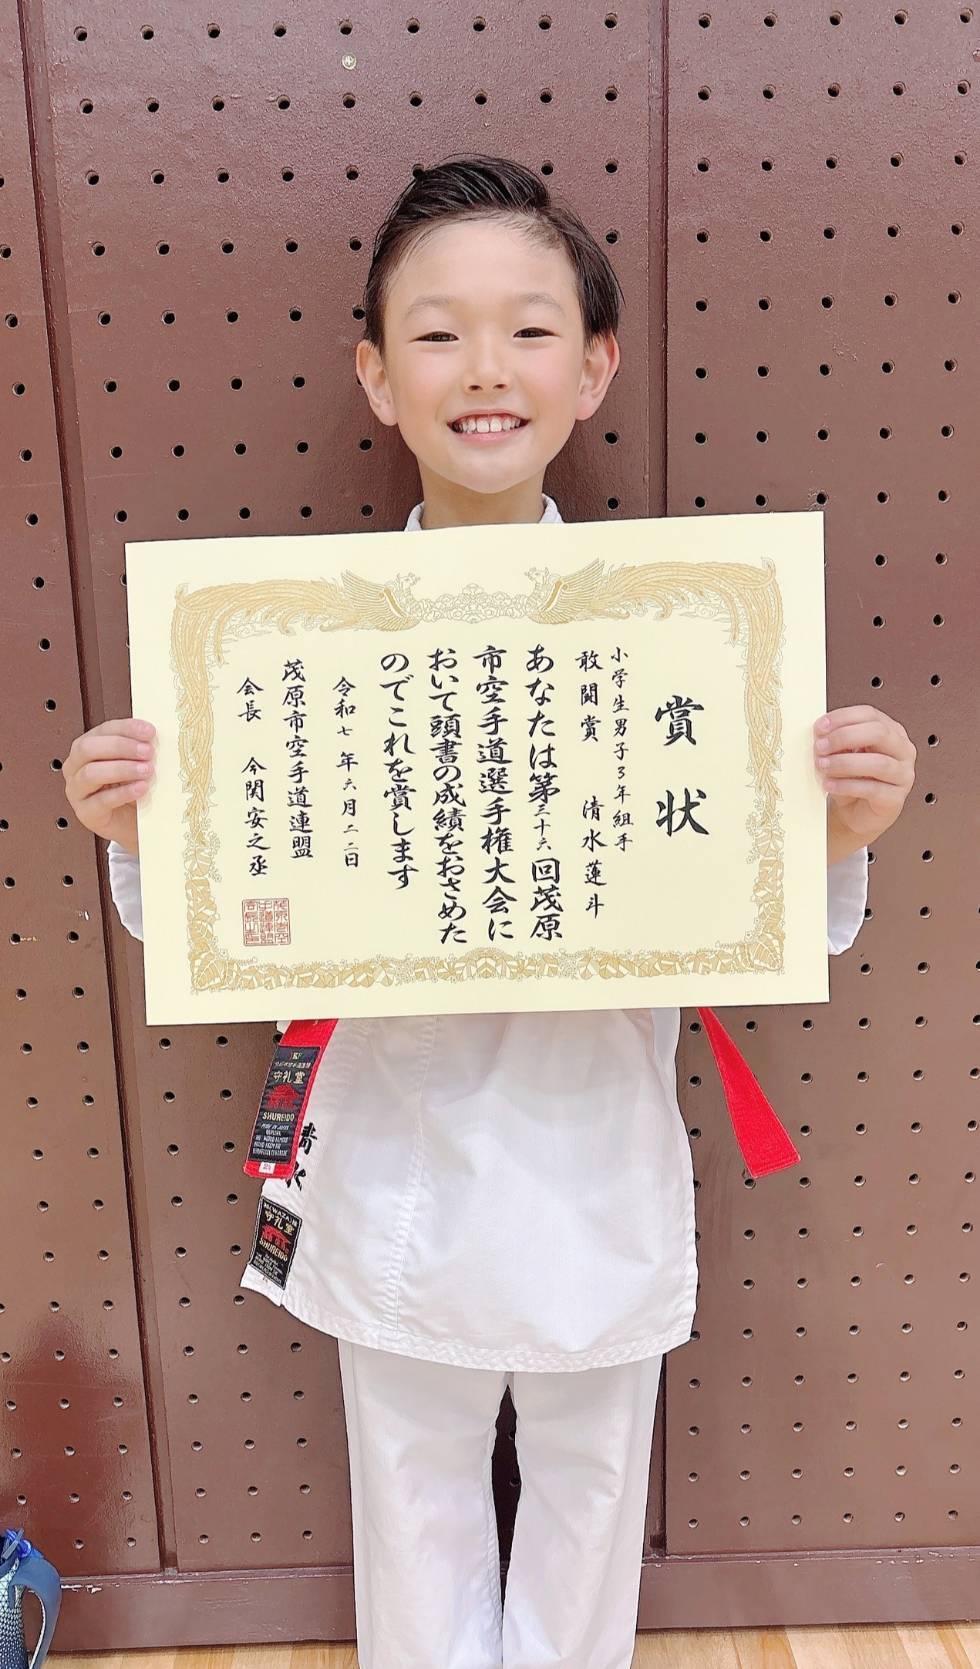 賞状
小学生男子3年組手
敢闘賞 清水蓮斗
あなたは第三十六回茂原
市空手道選手権大会に
おいて頭書の成績をおさめた
のでこれを賞します
令和七年六月二二日
茂原市空手道連盟
会長 今関安之丞
守礼堂
SHUREIDO
清水
守礼堂
SHUREIDO